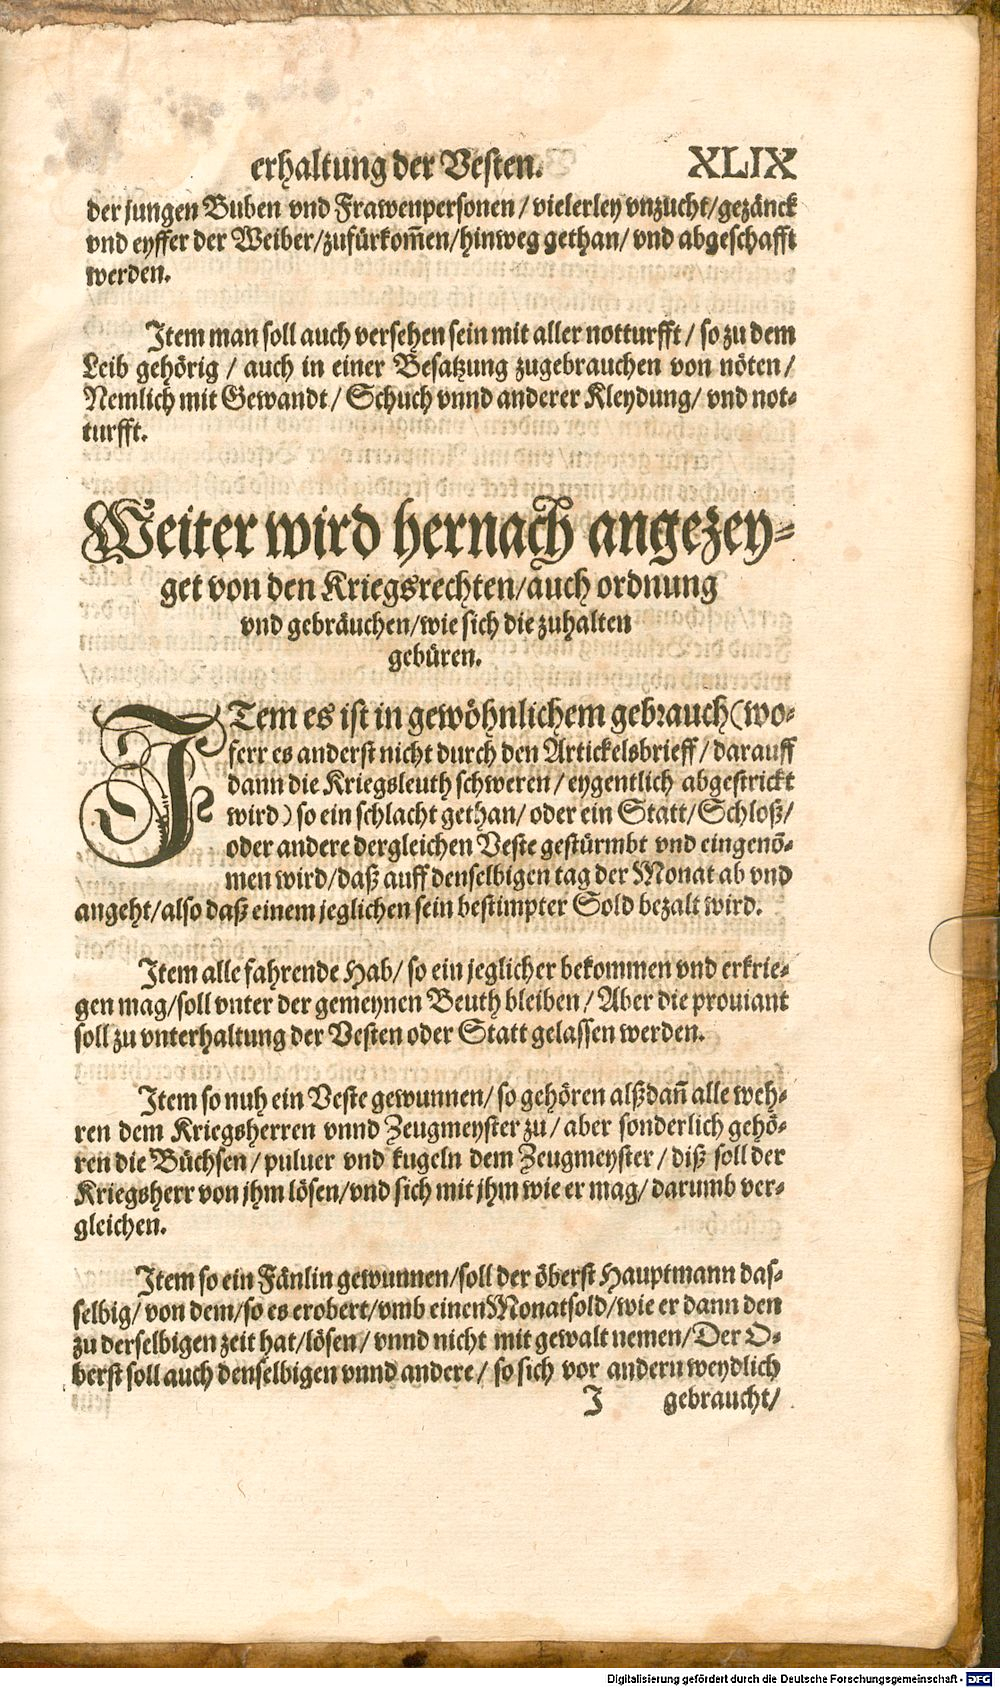 erhaltung der Vesten. XLIX
der jungen Buben vnd Frawenpersonen / vielerley vnzucht/gezänck
vnd eyffer der Weiber/zufürkom̃en/hinweg gethan/ vnd abgeschafft
werden.
Item man soll auch versehen sein mit aller notturfft / so zu dem
Leib gehörig / auch in einer Besatzung zugebrauchen von nöten /
Nemlich mit Gewandt / Schuch vnnd anderer Kleydung/ vnd not-
turfft.
Weiter wird hernach angezey-
get von den Kriegsrechten/auch ordnung
vnd gebräuchen/wie sich die zuhalten
gebüren.
ITem es ist in gewöhnlichem gebrauch (wo-
ferr es anderst nicht durch den Artickelsbrieff / darauff
dann die Kriegsleuth schweren / eygentlich abgestrickt
wird) so ein schlacht gethan/ oder ein Statt/ Schloß/
oder andere dergleichen Veste gestürmbt vnd eingenõ-
men wird/daß auff denselbigen tag der Monat ab vnd
angeht/also daß einem jeglichen sein bestimpter Sold bezalt wird.
Item alle fahrende Hab/ so ein jeglicher bekommen vnd erkrie-
gen mag/soll vnter der gemeynen Beuth bleiben / Aber die prouiant
soll zu vnterhaltung der Vesten oder Statt gelassen werden.
Item so nuh ein Veste gewunnen/ so gehören alßdañ alle weh-
ren dem Kriegsherren vnnd Zeugmeyster zu / aber sonderlich gehö-
ren die Büchsen / puluer vnd kugeln dem Zeugmeyster / diß soll der
Kriegsherr von jhm lösen/vnd sich mit jhm wie er mag/ darumb ver-
gleichen.
Item so ein Fänlin gewunnen/soll der öberst Hauptmann das-
selbig/ von dem/so es erobert/vmb einen Monatsold/wie er dann den
zu derselbigen zeit hat/lösen/ vnnd nicht mit gewalt nemen/Der O-
berst soll auch denselbigen vnnd andere / so sich vor andern weydlich
J gebraucht/
Digitalisierung gefördert durch die Deutsche Forschungsgemeinschaft - DFG